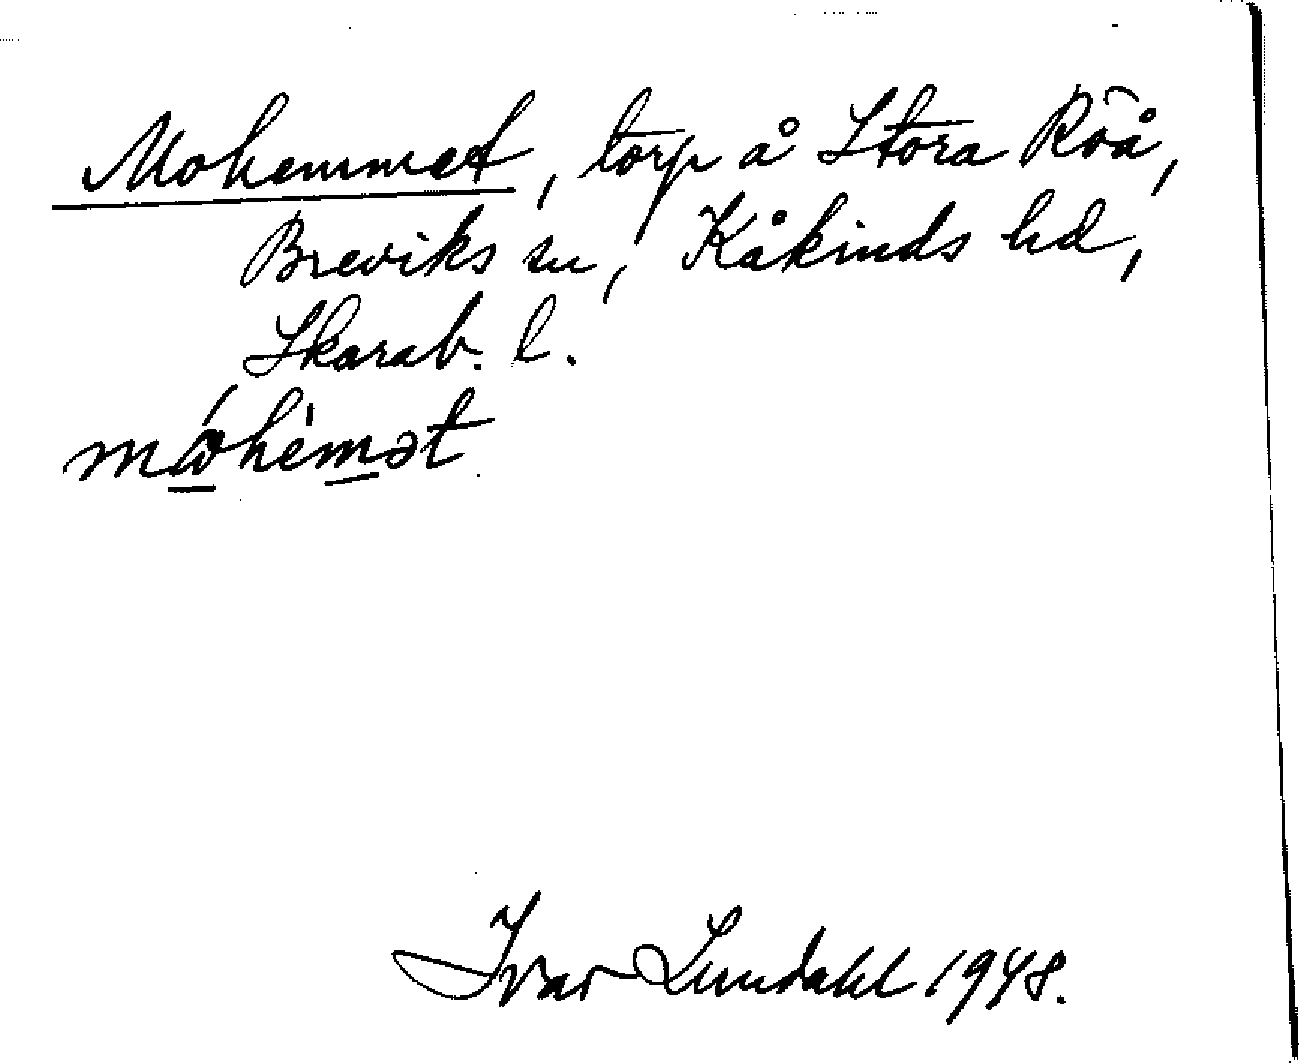 Mohemmet, torp å Stora Röå,
Breviks sn, Kåkinds hd,
Skarab. l.
Ivar Lundahl 1948.